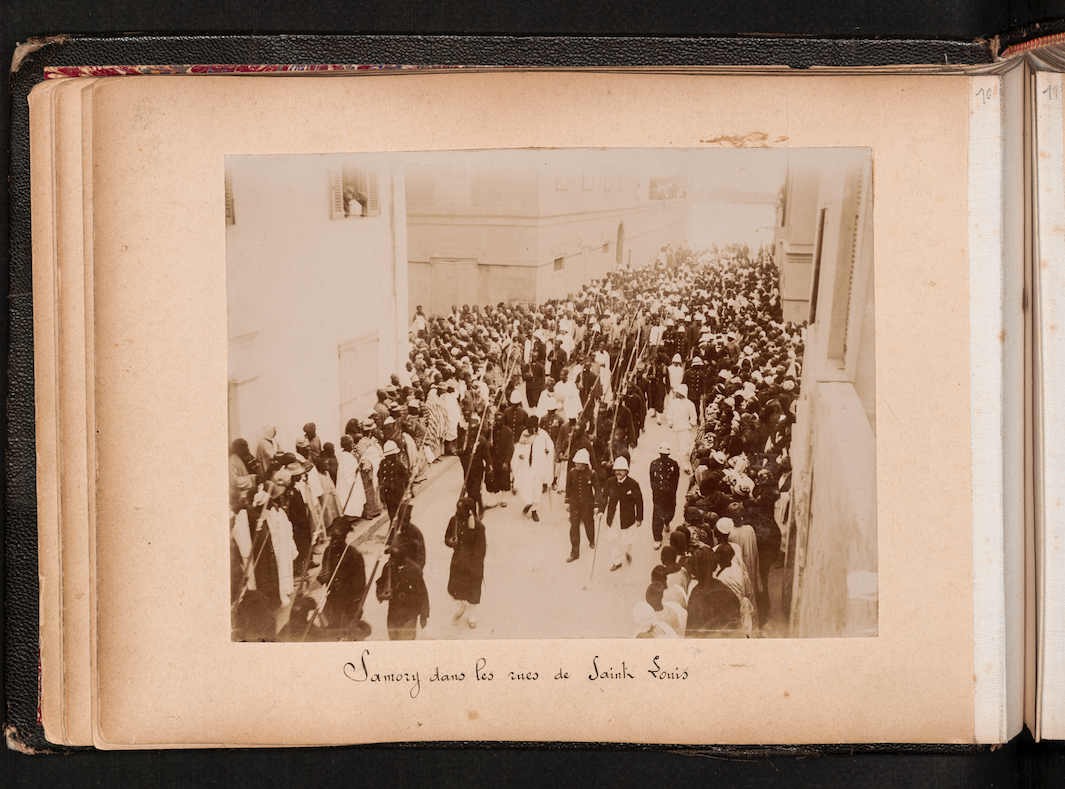 10
11
Samory dans les rues de Saint Louis